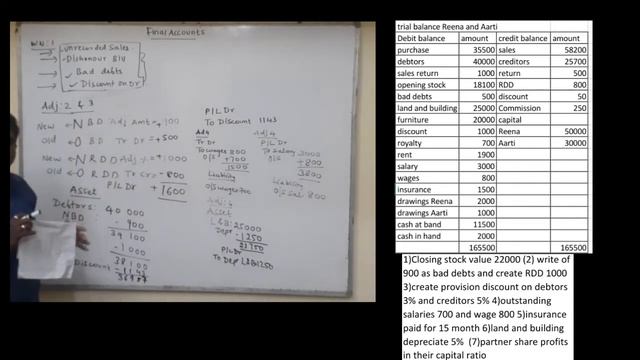 Final Accounts
WN:1
unrecorded Sales
Dishonour Bill
Bad debts
Discount on Dr
Adj: 2 & 3
New N B D Adj Amt = +100
Old O B D Tr Dr = +500
New N R D D Adj = +1000
Old O R D D Tr Cr = -800
P/L Dr +1600
Asset
Debtors: 40 000
NBD - 900
39 100
- 1 000
38 100
Discount - 1143
36957
P/L Dr
To Discount 1143
Adj 4
Tr Dr
To wages 800
O/S +700
1500
Liability
O/S wages 700
Adj 4
P/L Dr
To Salary 3000
O/S +800
3800
Liability
O/S Sal 800
Adj: 6
Asset
L&B: 25000
Dep - 1250
23750
P/L Dr
To Dep L&B 1250
trial balance Reena and Aarti
Debit balance amount credit balance amount
purchase 35500 sales 58200
debtors 40000 creditors 25700
sales return 1000 return 500
opening stock 18100 RDD 800
bad debts 500 discount 50
land and building 25000 Commission 250
furniture 20000 capital
discount 1000 Reena 50000
royalty 700 Aarti 30000
rent 1900
salary 3000
wages 800
insurance 1500
drawings Reena 2000
drawings Aarti 1000
cash at band 11500
cash in hand 2000
165500 165500
1)Closing stock value 22000 (2) write of
900 as bad debts and create RDD 1000
3)create provision discount on debtors
3% and creditors 5% 4)outstanding
salaries 700 and wage 800 5)insurance
paid for 15 month 6)land and building
depreciate 5% (7)partner share profits
in their capital ratio